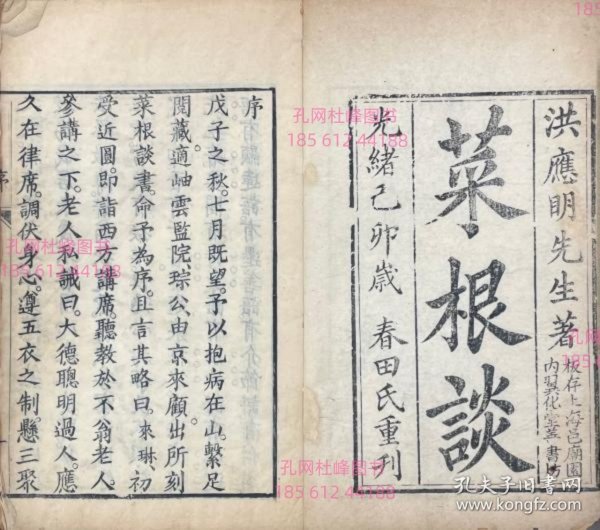 洪應明先生著
板存上海邑廟園
內翼化堂善書坊
菜根談
光緒己卯歲 春田氏重刊
序
戊子之秋。七月既望。予以抱病在山。繫足
閱藏。適岫雲監院琮公由京來顧。出所刻
菜根談書。命予為序。且言其略曰。來琳初
受近圓。即詣西方講席。聽教於不翁老人。
參講之下。老人私誡曰。大德聰明過人。應
久在律席。調伏身心。遵五衣之制。懸三聚
序
孔网杜峰图书
185 612 44188
孔网杜峰图书
185 612 44188
孔网杜峰图书
185 612 44188
孔夫子旧书网